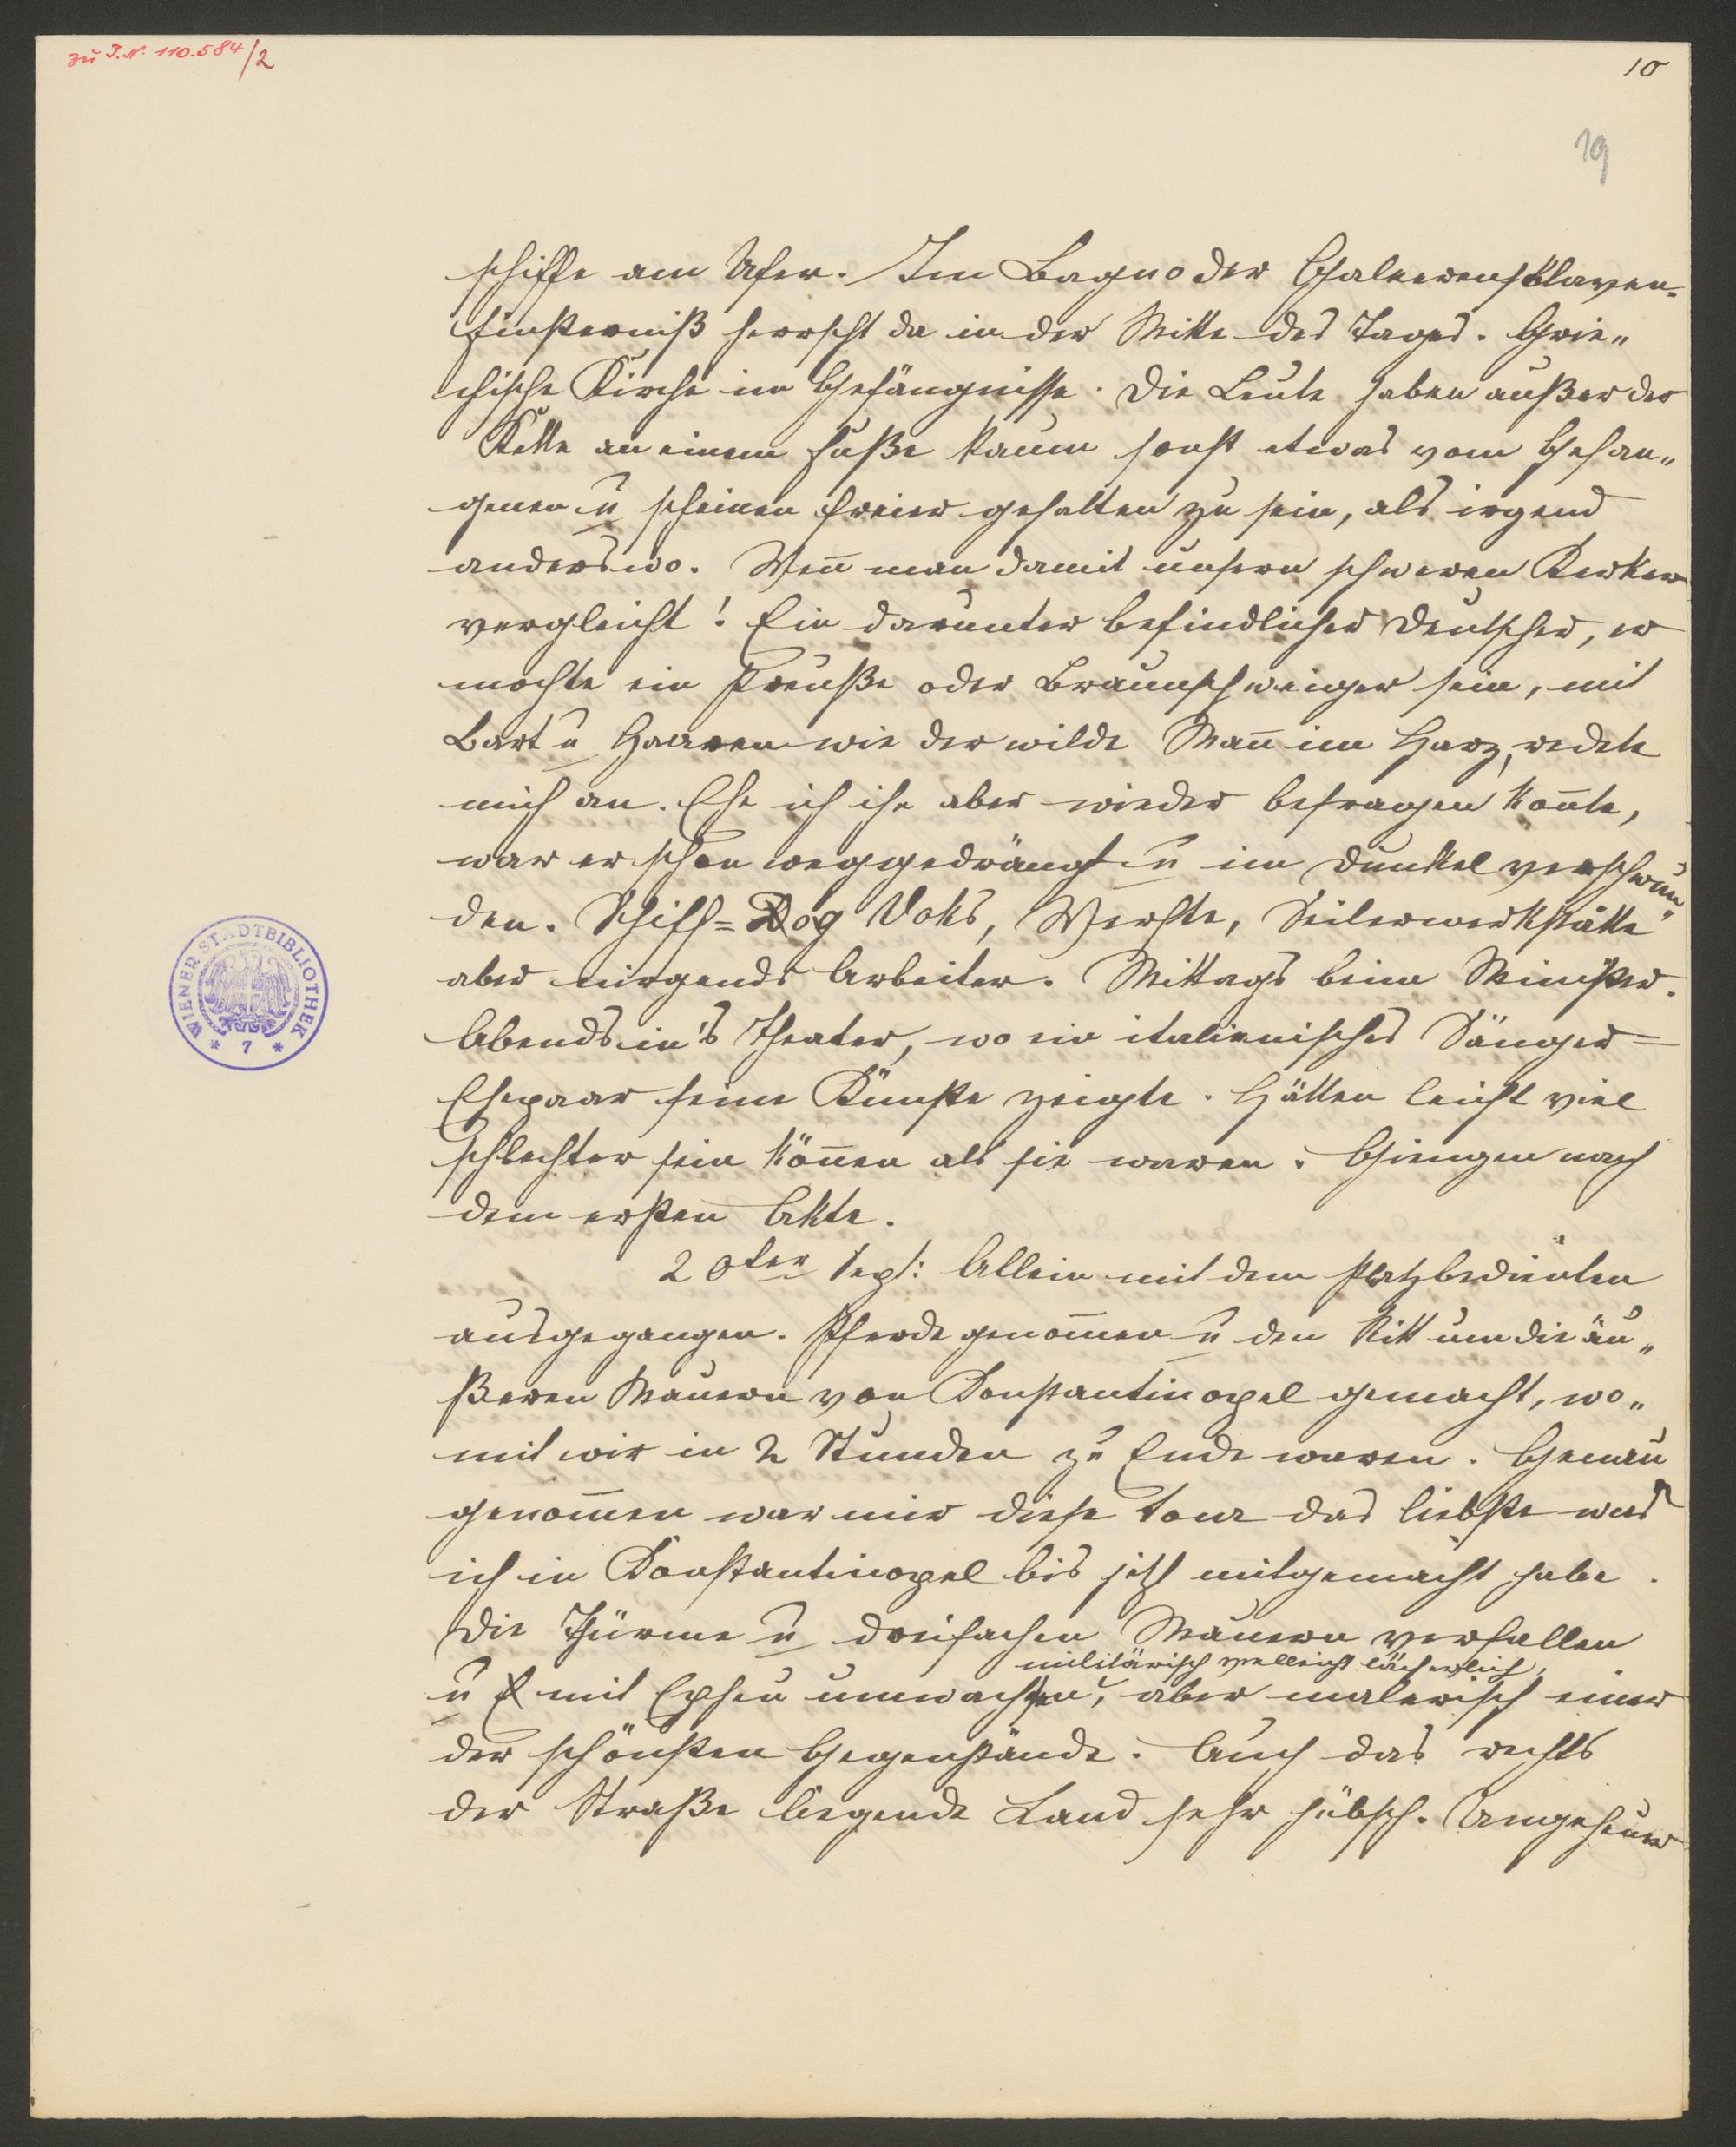 zu I.N. 110.584/2
10
19
schiffe am Ufer. Im Bagno der Galeerensklaven.
Finsterniß herrscht da in der Mitte des Tages. Grie„
chische Kirche im Gefängnisse. Die Leute haben außer der
Kette an einem Fuße kaum sonst etwas vom Gefan„
genen u scheinen freier gehalten zu sein, als irgend
anderswo. Weñ man damit unsern schweren Kerker
vergleicht! Ein darunter befindlicher Deutscher, er
mochte ein Preuße oder Braunschweiger sein, mit
Bart u Haaren wie der wilde Mañ im Harz, redete
mich an. Ehe ich ihn aber wieder befragen koñte,
war er schon weggedrängt u im Dunkel verschwun„
den. Schiff= Dog Doks, Werfte, Seilerwerkstätte
aber nirgends Arbeiter. Mittags beim Minister.
Abends in's Theater, wo ein italienisches Sänger=
Ehepaar seine Künste zeigte. Hätten leicht viel
schlechter sein köñen als sie waren. Giengen nach
dem ersten Akte.
20ten Sept: Allein mit dem Platzbedienten
ausgegangen. Pferde genom̄en u den Ritt um die äu„
ßeren Mauern von Konstantinopel gemacht, wo„
mit wir in 2 Stunden zu Ende waren. Genau
genom̄en war mir diese Tour das liebste was
ich in Konstantinopel bis jetzt mitgemacht habe.
Die Thürme u dreifachen Mauern verfallen
militärisch vielleicht lächerlich,
u mit Epheu umwachsen, aber malerisch einer
der schönsten Gegenstände. Auch das rechts
der Straße liegende Land sehr hübsch. Ungeheuer
WIENER STADTBIBLIOTHEK
* 7 *